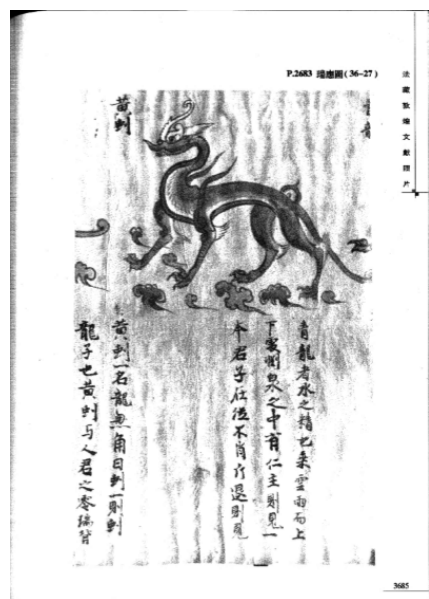 P.2683 瑞應圖(36-27)
法藏敦煌文獻照片
黃虬
青龍者水之精也乘雲雨而上
下處淵泉之中有仁主則見一
本君子在位不肖斥退則見
黃虬一名龍無角曰虬一則虬
龍子也黃虬与人君之
3685